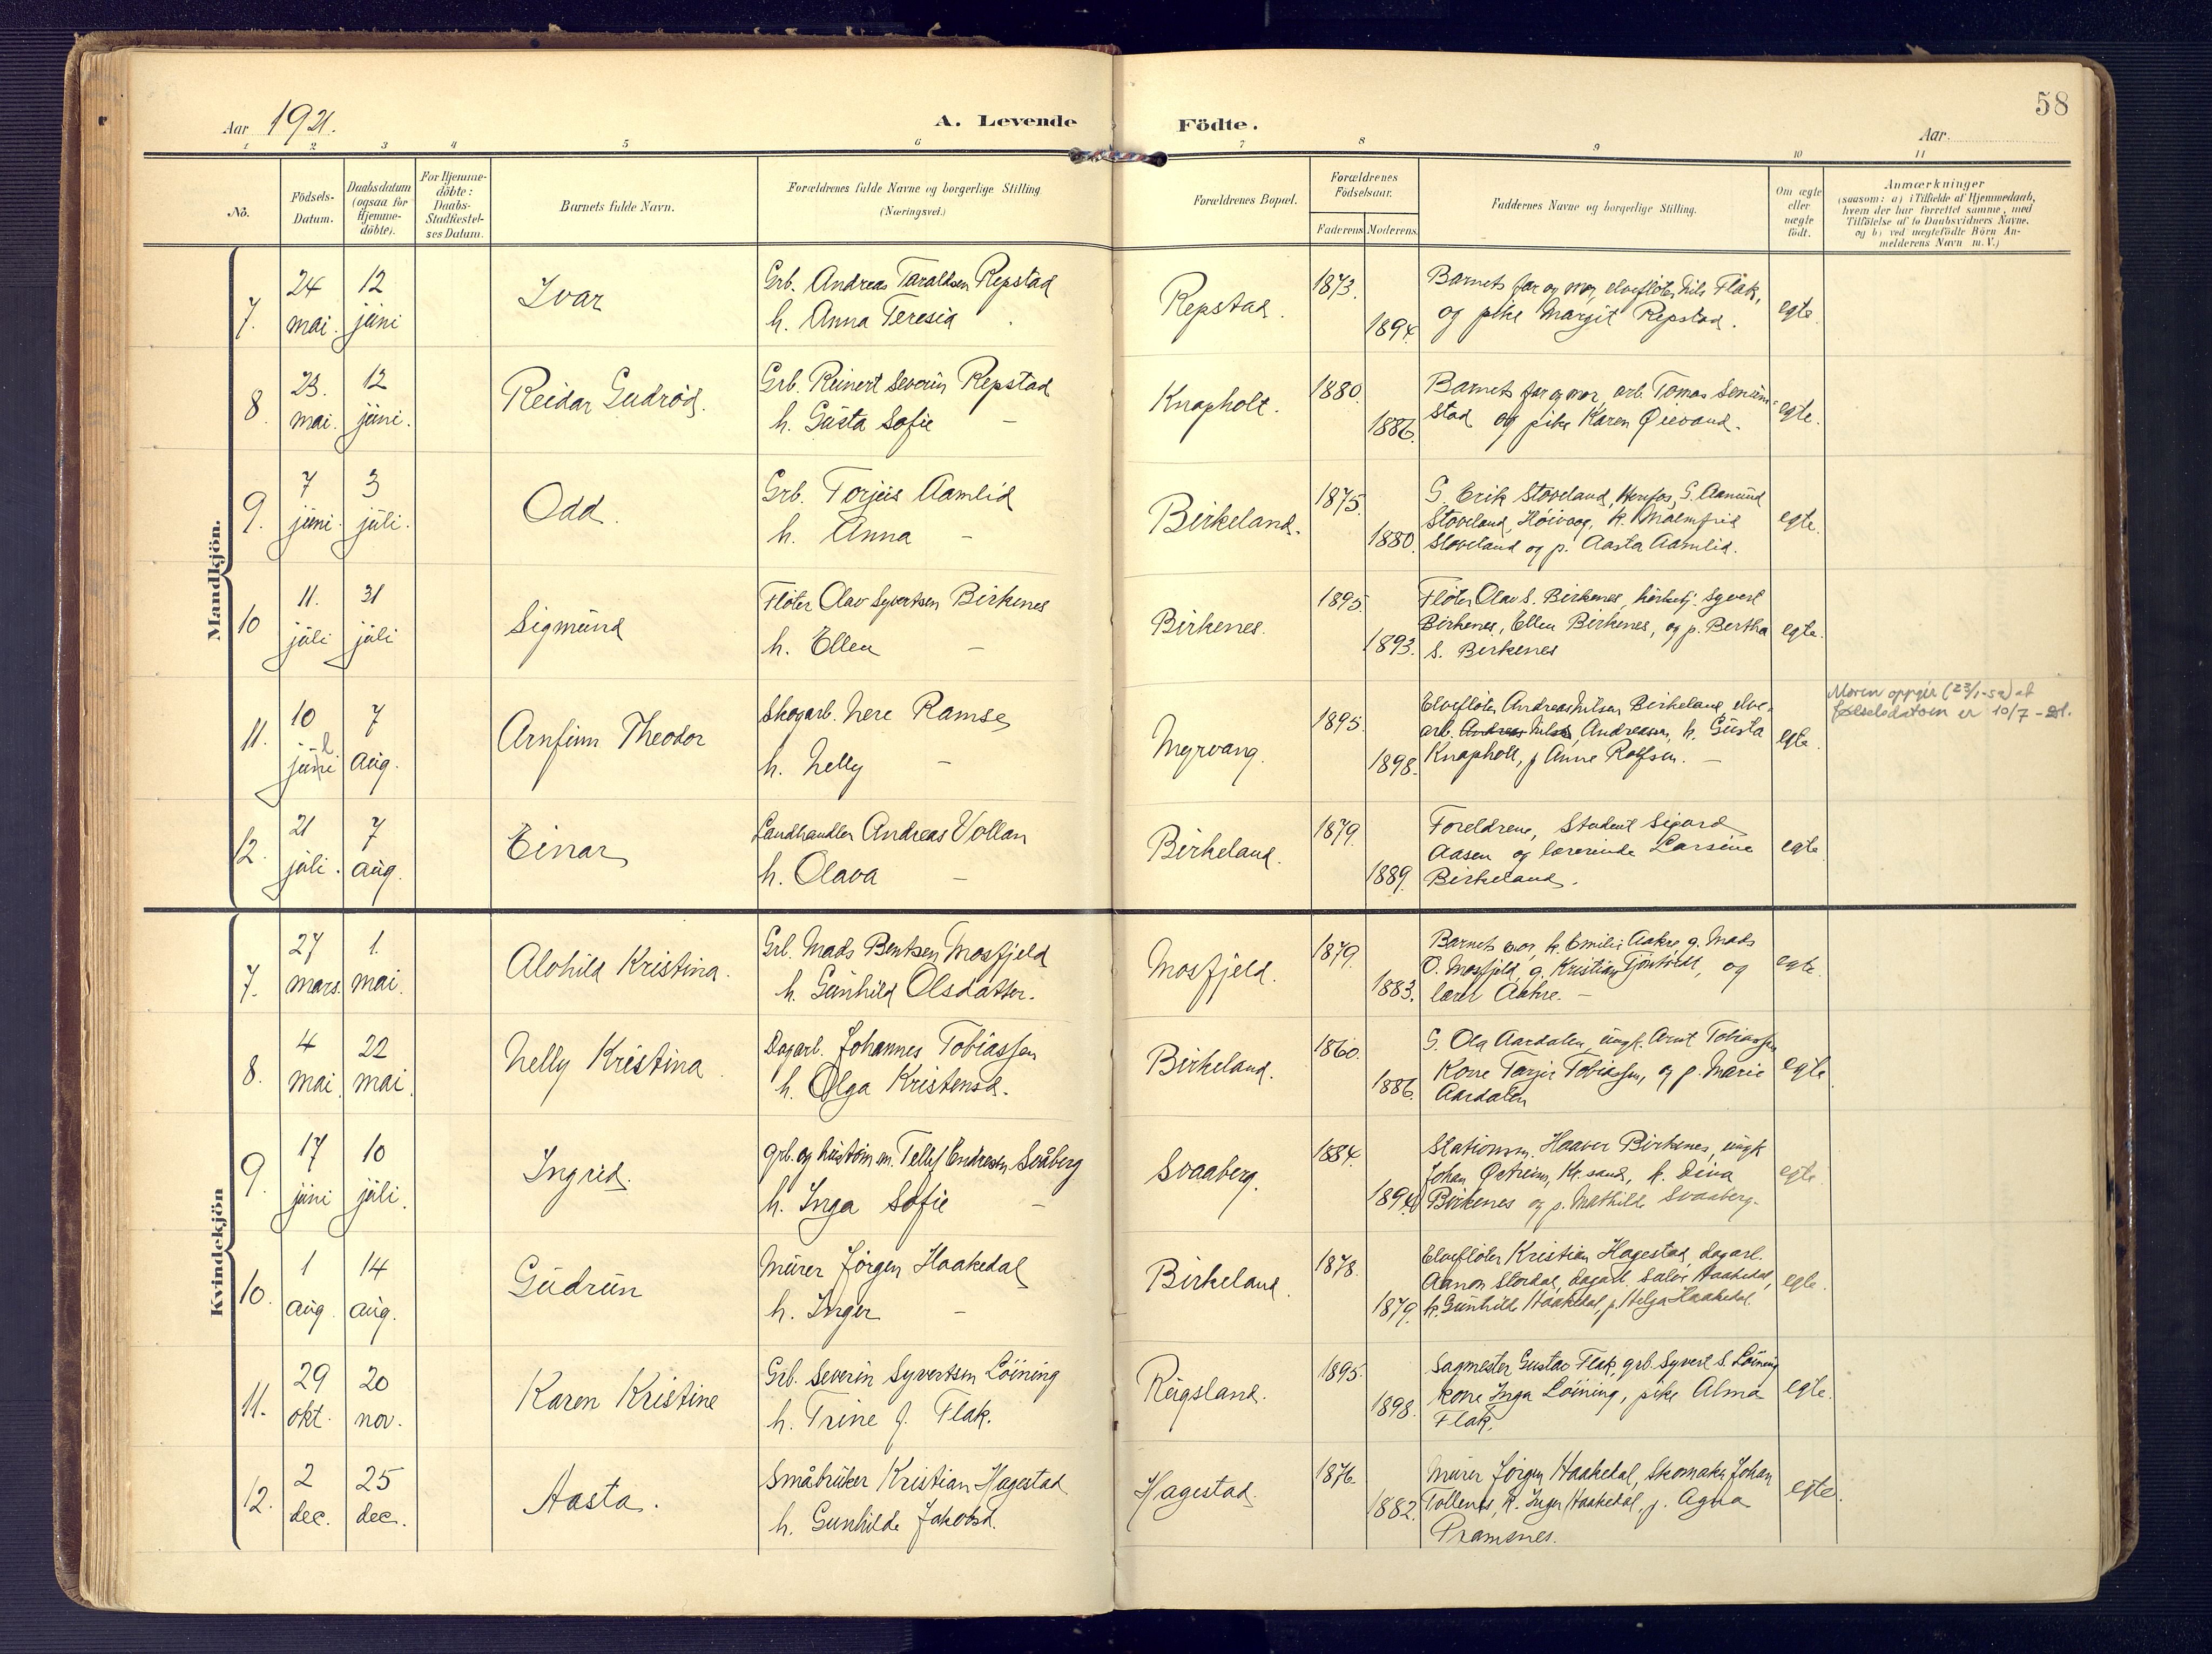 58
Aar 1921.
A. Levende Födte.
Aar
1 2 3 4 5 6 7 8 9 10 11
No.
Födsels-
Datum.
Daabsdatum
(ogsaa for
Hjemme-
döbte).
For Hjemme-
döbte:
Daabs-
Stadfæstel-
ses Datum.
Barnets fulde Navn.
Forældrenes fulde Navne og borgerlige Stilling
(Næringsvei.)
Forældrenes Bopæl.
Forældrenes
Födselsaar.
Faderens Moderens
Faddernes Navne og borgerlige Stilling.
Om ægte
eller
uægte
födt.
Anmærkninger
(saasom: a) i Tilfælde af Hjemmedaab,
hvem der har forrettet samme, med
Tilföielse af to Daabsvidners Navne.
og b) ved uægtefödte Börn An-
melderens Navn m. V.)
Mandkjön.
7. 24 mai. 12 juni
Ivar
Grb. Andreas Taraldsen Repstad
h. Anna Teresia
Repstad.
1873. 1894.
Barnets far og mor, elvefløter Nils Flak,
og pike Margit Repstad.
egte
8. 23. mai. 12 juni.
Reidar Gudrød.
Grb. Reinert Severin Repstad
h. Gusta Sofie –
Knapholt.
1880. 1886.
Barnets far og mor, arb. Tomas Senum-
stad og pike Karen Øievand.
egte.
9. 7 juni. 3 juli.
Odd.
Grb. Torjus Aamlid
h. Anna –
Birkeland.
1875. 1880.
G. Erik Støveland, G. Aamund
Støveland, Høivaag, k. Malmfrid
Støveland og p. Aasta Aamlid.
egte
10 11. juli 31 juli
Sigmund
Fløter Olav Syvertsen Birkenes
h. Ellen –
Birkenes.
1895. 1893.
Fløter Olav S. Birkenes, Syvert
Birkenes, Ellen Birkenes, og p. Bertha
S. Birkenes
egte.
11. 10 juni l 7 aug.
Arnfinn Theodor
Skogarb. Nere Ramse
h. Nelly –
Myrvang.
1895. 1898.
Elvefløter Andreas Nilsen Birkeland, elve-
arb. Andreas Nilsen, Andreasen, h. Gusta
Knapholt, p Anne Rolfsen. –
egte.
Moren oppgir (23/1-52) at
fødselsdatoen er 10/7-21.
12. 21 juli. 7 aug.
Einar
Landhandler Andreas Vollan
h. Olava –
Birkeland.
1879. 1889.
Foreldrene, Student Sigurd
Aasen og lærerinde Larsine
Birkeland.
egte
Kvindekjön
7. 27 mars. 1. mai.
Alohild Kristina.
Grb. Mads Bentsen Mosfjeld
h. Gunhild Olsdatter.
Mosfjeld.
1879. 1883.
Barnets mor, k. Emilie Aakre, g. Mads
O. Mosfjeld, g. Kristian, og
lærer Aakre. –
egte.
8. 4 mai. 22 mai.
Nelly Kristina.
Dagarb. Johannes Tobiassen
h. Olga Kristensd.
Birkeland.
1860. 1886.
G. Ola Aardalen, ungk. Arnt Tobiassen
Kone Torjer Tobiassen, og p. Marie
Aardalen
egte.
9. 17 juni 10 juli.
Ingrid.
grb. og hustøm m. Tellef Endresen Svåberg
h. Inga Sofie –
Svaaberg.
1884. 1894
Stationsm. Haaver Birkenes, ungk
Johan Østreim, Kr.sand, k. Dina
Birkenes og p. Mathilde Svaaberg.
egte
10. 1 aug. 14 aug.
Gudrun
Murer Jørgen Haakedal
h. Inger –
Birkeland.
1878. 1879.
Elvefløter Kristian Hagestad, dagarb.
Aanon Stordal, dagarb. Salve Haakedal,
k. Gunhilde Haakedal, p. Helga Haakedal.
egte.
11. 29 okt. 20 nov.
Karen Kristine
Grb. Severin Syvertsen Løining
h. Trine J. Flak.
Rugsland.
1895. 1898.
Sagmester Gustav Flak, grb. Syvert S. Løining
kone Inga Løining, pike Alma
Flak.
egte.
12. 2 dec. 25 dec.
Aasta.
Småbruker Kristian Hagestad
h. Gunhilde Jakobsd.
Hagestad.
1876. 1882.
Murer Jørgen Haakedal, Skomaker Johan
Tollenes, k. Inger Haakedal, p. Agna
Pramsnes.
egte.